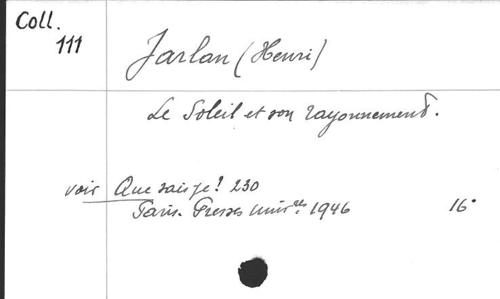 Coll.
111
Jarlan (Henri)
Le Soleil et son rayonnement.
voir Que sais je? 230
Paris. Presses univ.res 1946 16°